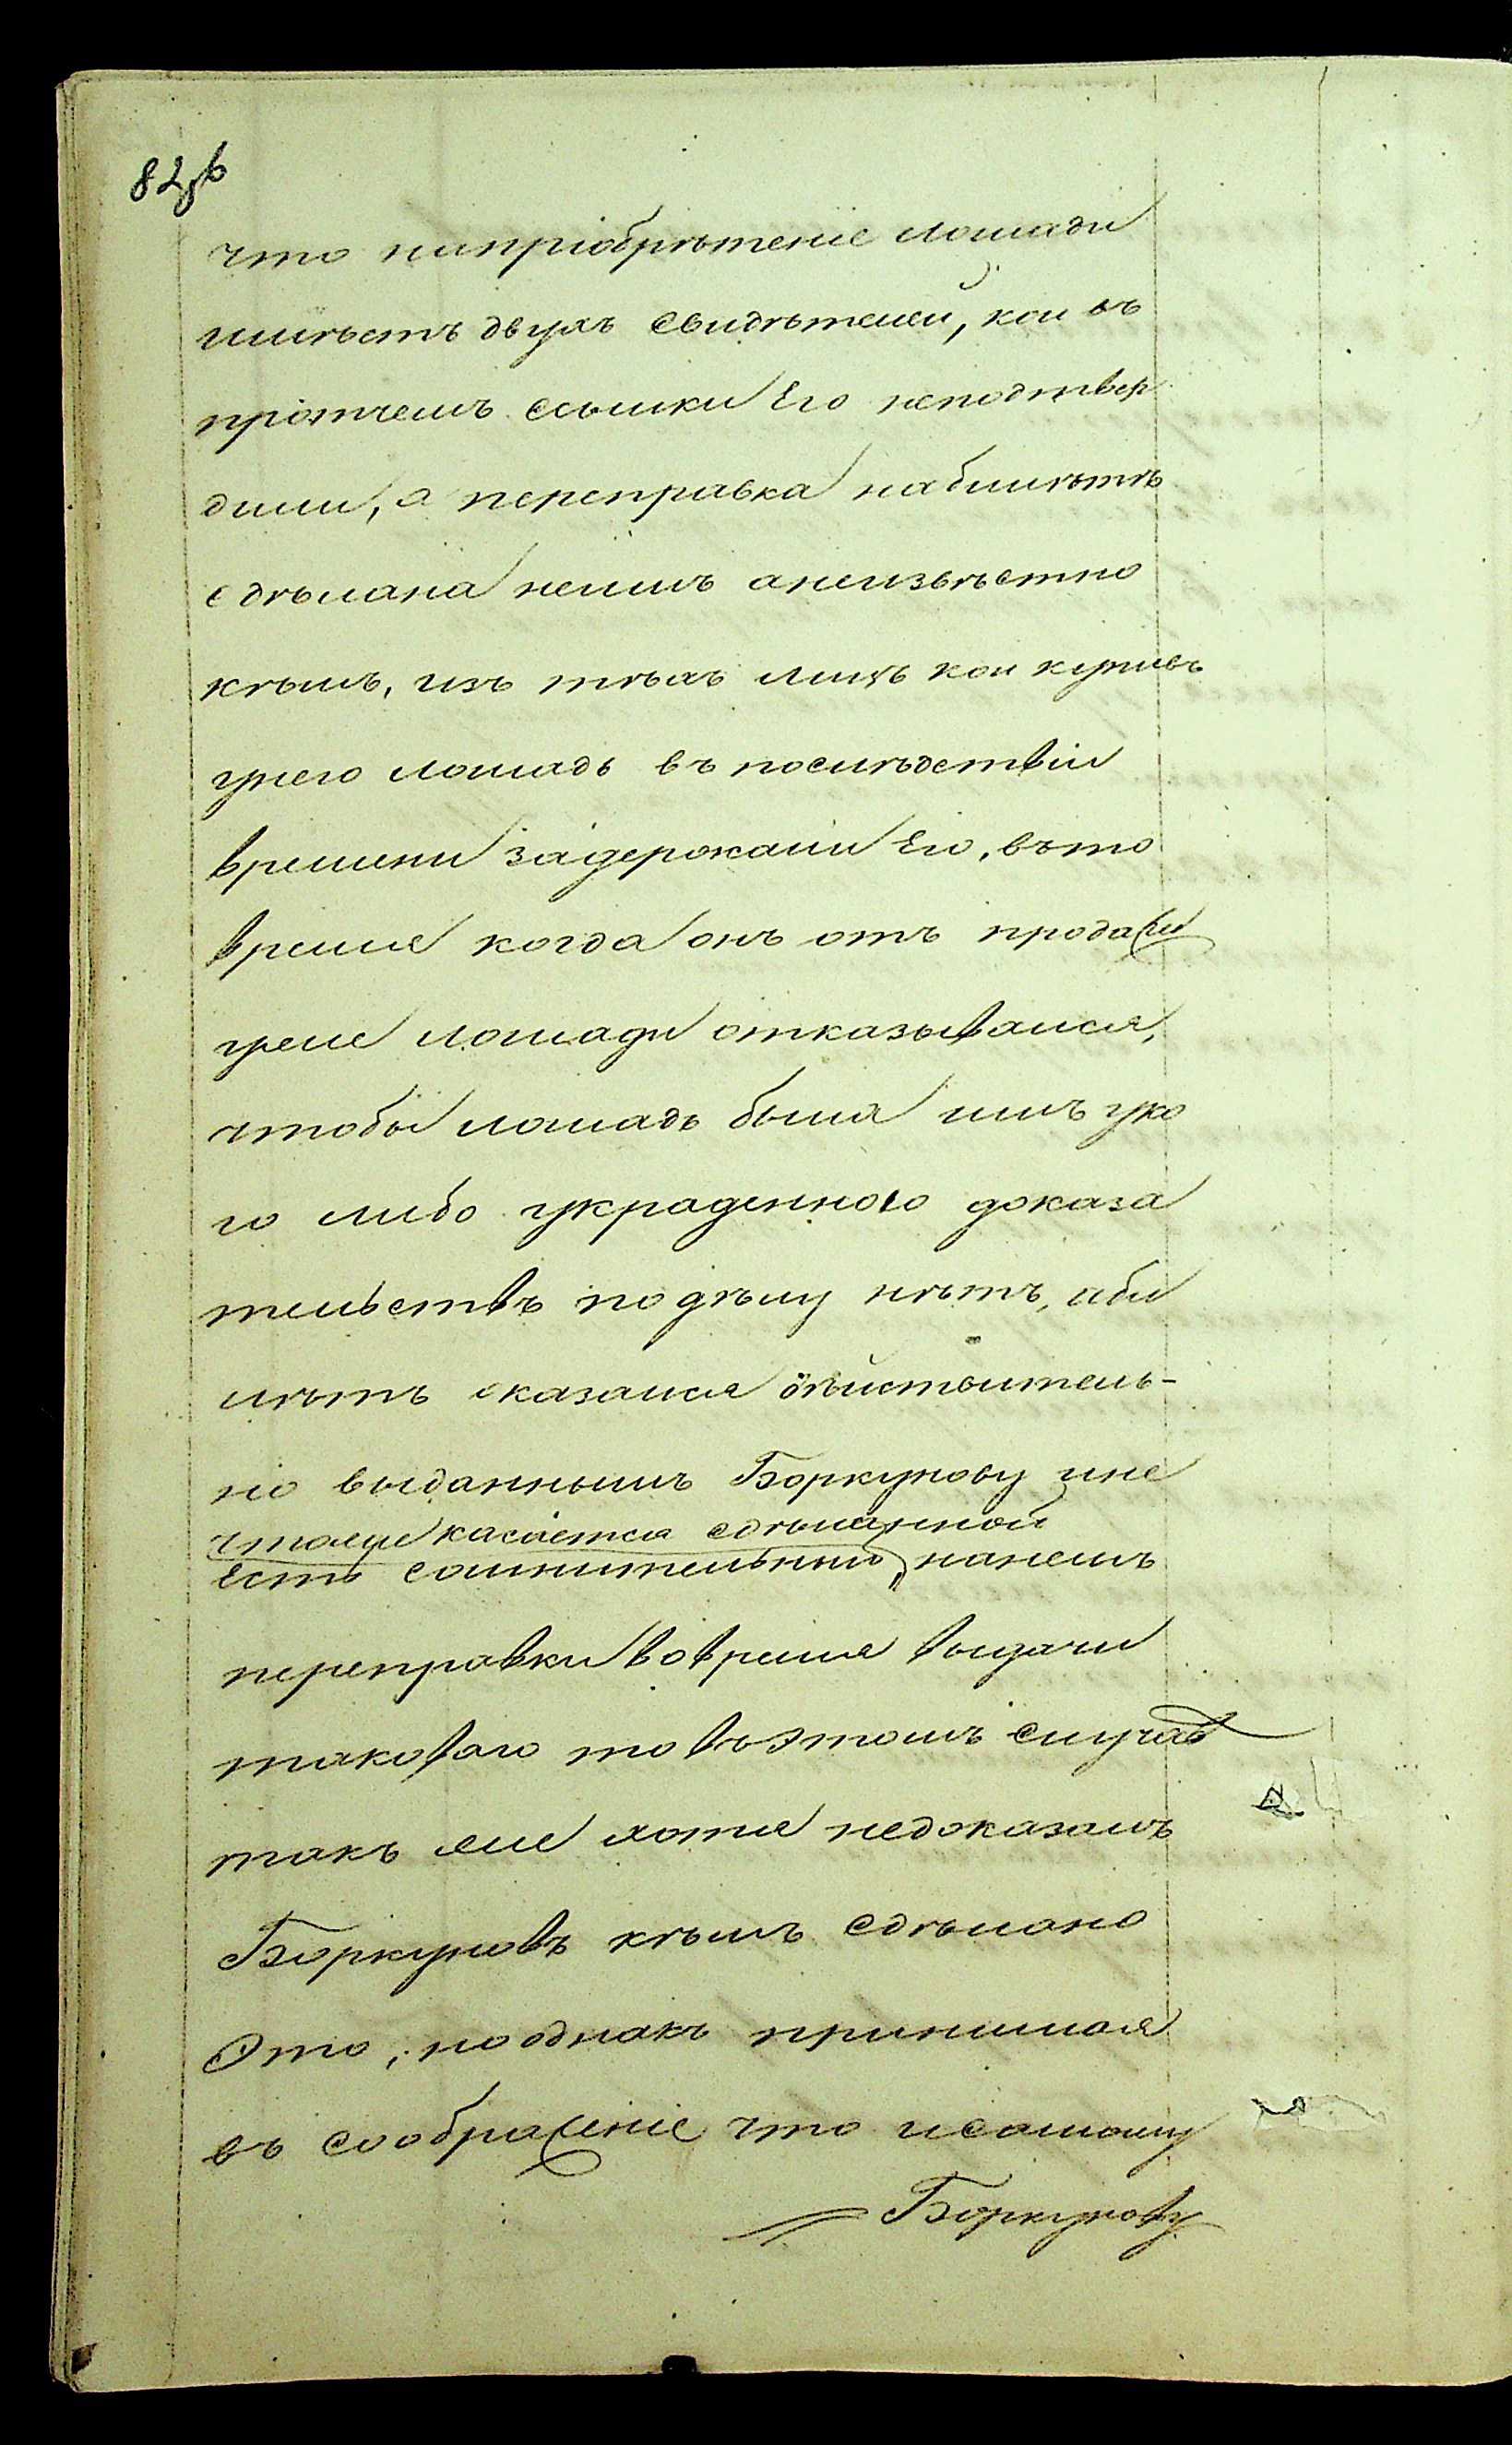 82об
что напріобрѣтеніе лошади
имѣетъ двухъ свидѣтелей, кои въ
протчемъ ссылки Его неподтвер
дили, а переправка набилѣтѣ
сдѣлана неимъ анеизвѣстно
кѣмъ, изъ тѣхъ лицъ кои купивъ
унего лошадь въ послѣдствіи
времени задержали Его, въто
время когда онъ отъ продажи
уже лошади отказывался,
чтобы лошадь была имъ уко
го либо украденною доказа
тельствъ подѣлу нѣтъ, аби
лѣтъ оказался дѣйствитель-
но выданнымъ Боркунову ине
чтоже касается сдѣланной
Есть сомнительный, нанемъ
переправки вовремя выдачи
таковаго то вэтомъ случаѣ
такъ же хотя недоказалъ
Боркуновъ кѣмъ сдѣлано
Это, но однакъ принимая
въ сображеніе что исамому
Боркунову